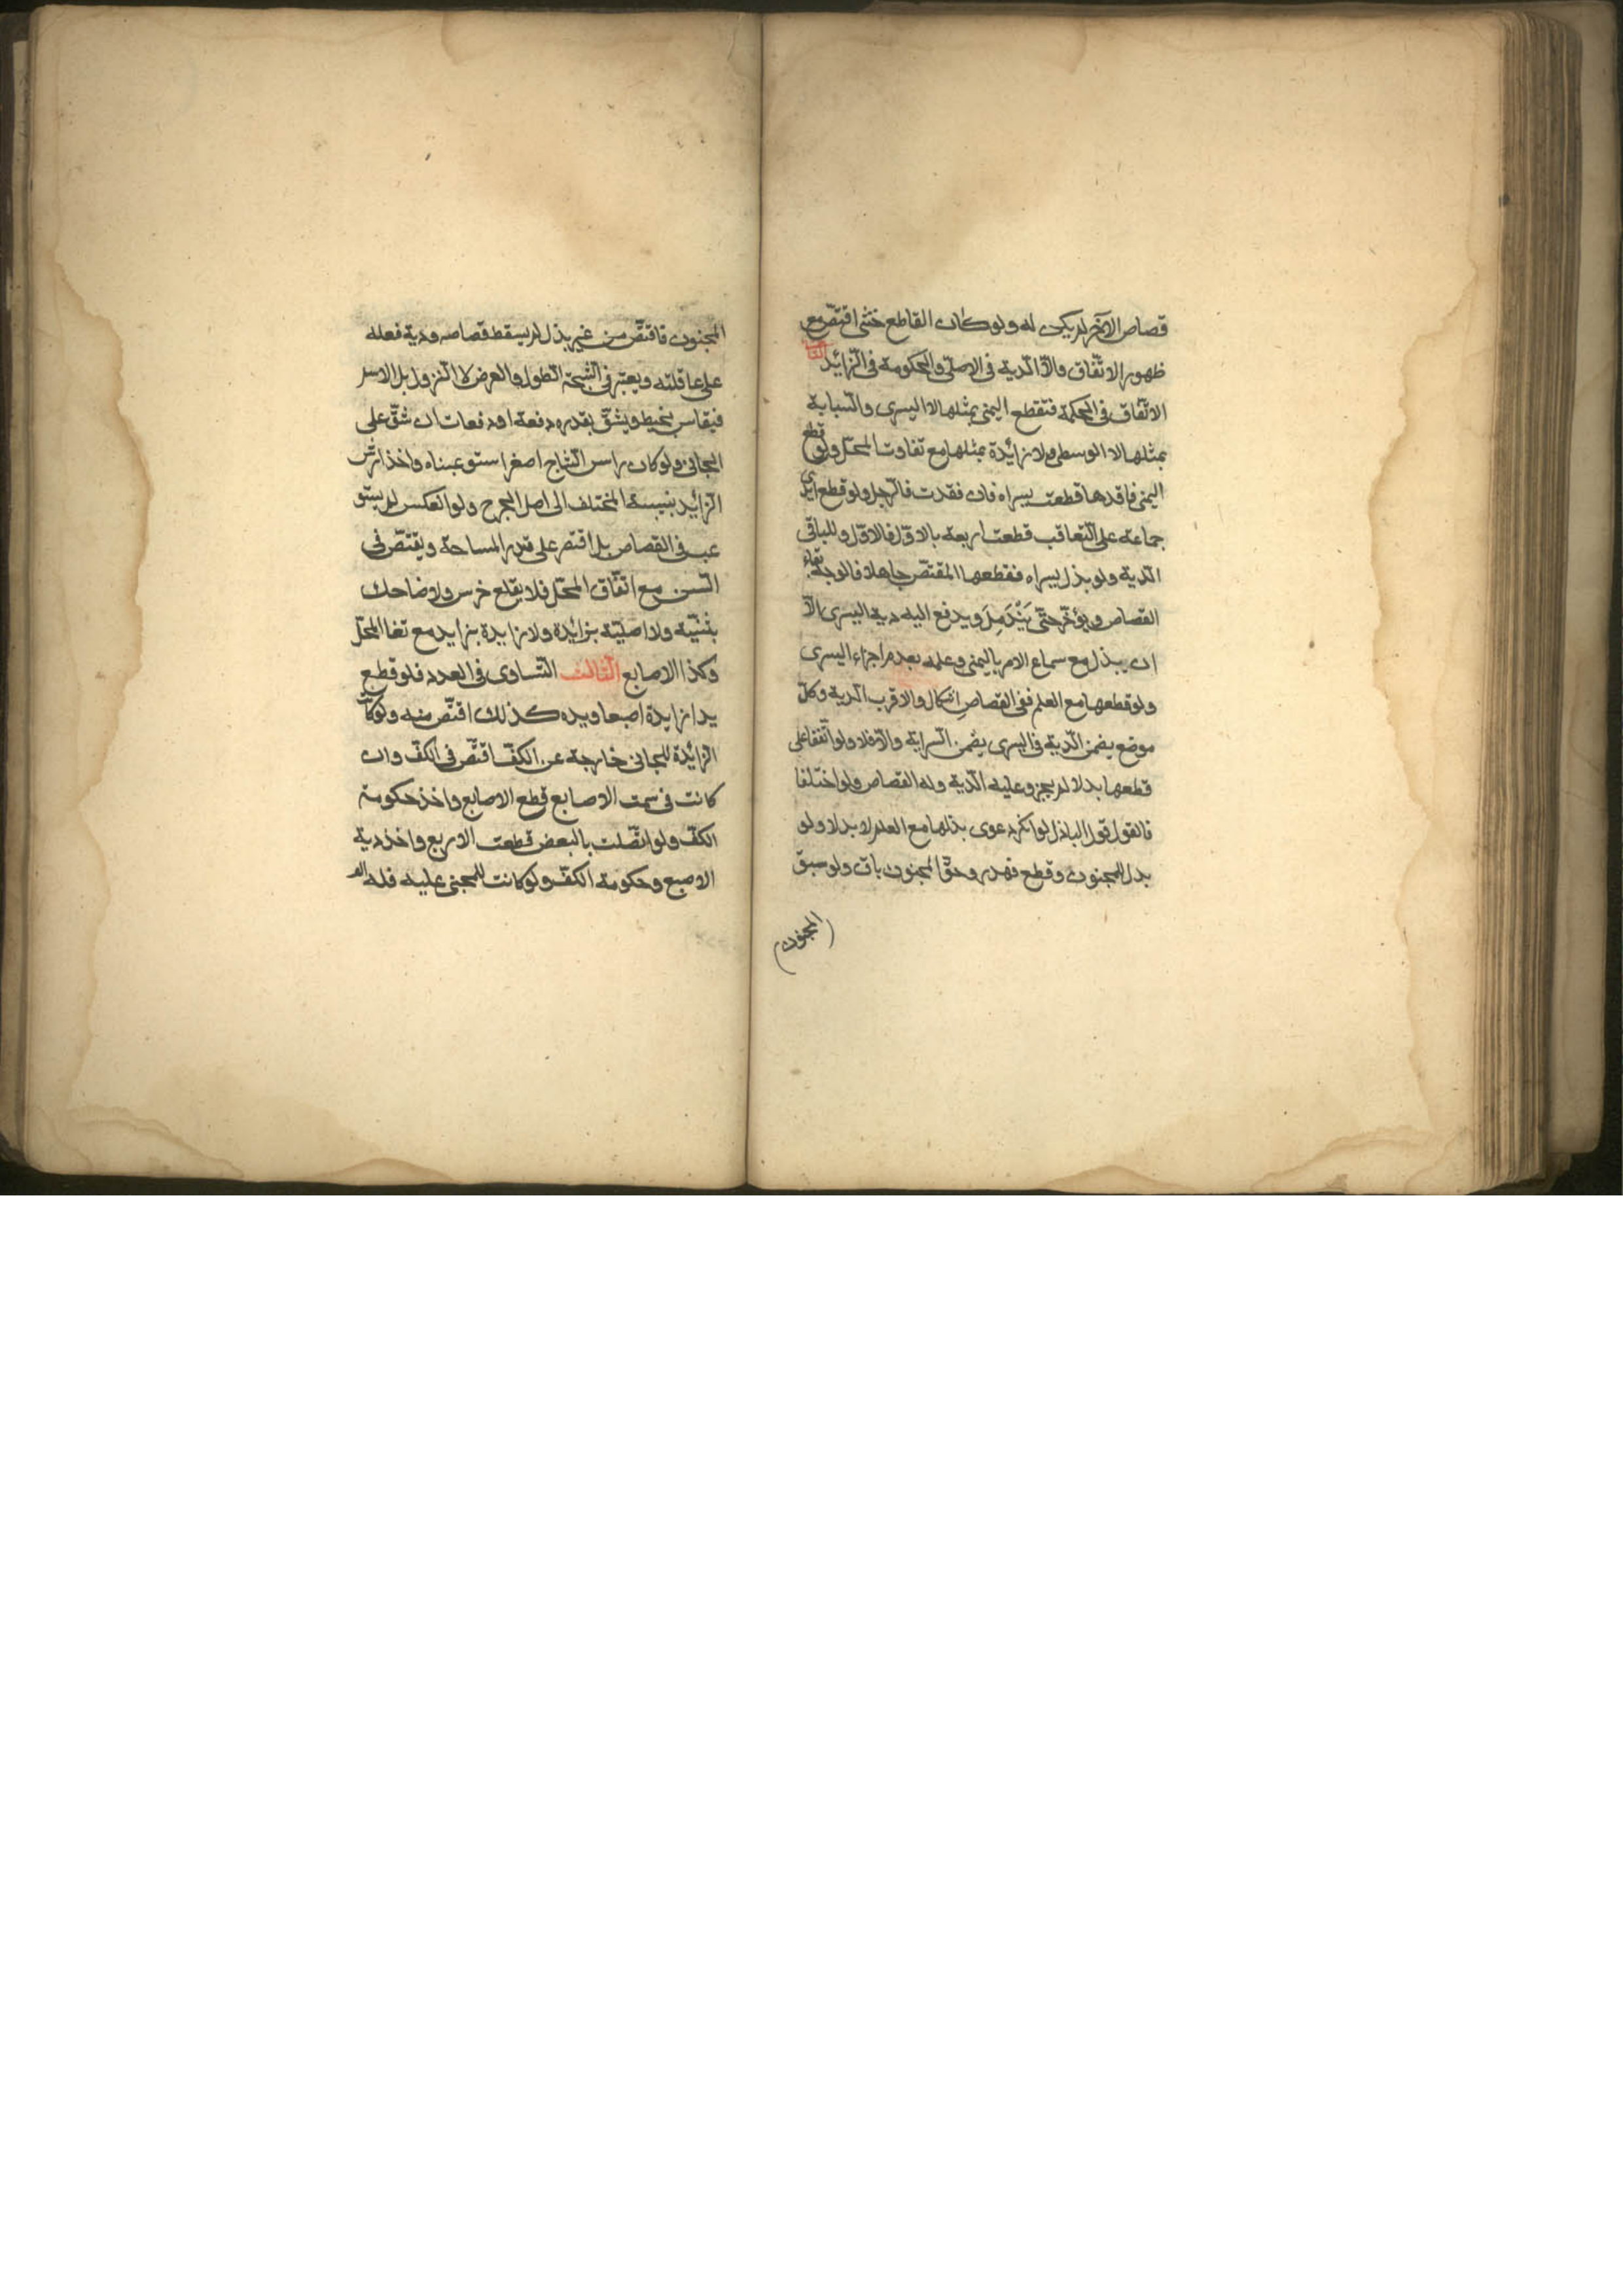 قصاص الآخر لم يكن له ولو كان القاطع خنثى اقتصّ مع
ظهور الاتّفاق والّا الدية في الاصلى والحكومة في الزائد الثانى
الاتّفاق في المحل فتقطع اليمنى بمثلها لا اليسرى والسّبابة
بمثلها لا الوسطى ولا زائدة بمثلها مع تفاوت المحلّ ولو قطع
اليمنى فاقدها قطعت يسراه فان فقدت فالرّجل ولو قطع ايدى
جماعة على التّعاقب قطعت اربعة بالاوّل فالاوّل وللباقى
الدّية ولو بذل يسراه فقطعها المقتصّ جاهلا فالوجه بقاء
القصاص ويؤخّر حتّى يَنْدَمِلَ ويدفع اليه دية اليسرى الّا
ان يبذل مع سماع الامر باليمنى وعلمه بعدم اجزاء اليسرى
ولو قطعها مع العلم ففى القصاصِ اشكال والاقرب الدية وكلّ
موضع يضمن الدّية في اليسرى يضمن السّراية والّا فلا ولو اتّفقا على
قطعها بدلا لم يجز وعليه الدّية وله القصاص ولو اختلفا
فالقول قول الباذل لو انكر دعوى بذلها مع العلم لا بدلا ولو
بذل للمجنون وقطع فهدر وحقّ المجنون باق ولو سبق
(المجنون)
المجنون فاقتصّ من غير بذل لم يسقط قصاصه ودية فعله
على عاقلته ويعتبر في الشّجّة الطول والعرض لا النزول بل الاسم
فيقاس بخيط ويشقّ بقدره دفعة او دفعات ان شقّ على
الجانى ولو كان راس الشاج اصغر استوعبناه واخذ ارش
الزائد بنسبة المختلف الى اصل الجرح ولو انعكس لم يستو
عب في القصاص بل اقتصر على قدر المساحة ويقتصّ في
السّن مع اتّفاق المحلّ فلا يقلع ضرس ولا ضاحك
بثنيّة ولا اصليّة بزائدة ولا زايدة بزايد مع تغا المحلّ
وكذا الاصابع الثّالث التّساوى في العدد فلو قطع
يدا زايدة اصبعا ويده كذلك اقتصّ منه ولو كانت
الزائدة للجانى خارجة عن الكفّ اقتصّ في الكفّ وان
كانت في سمت الاصابع قطع الاصابع واخذ حكومة
الكفّ ولو اتّصلت بالبعض قطعت الاربع واخذ دية
الاصبع وحكومة الكفّ ولو كانت للمجنى عليه فله